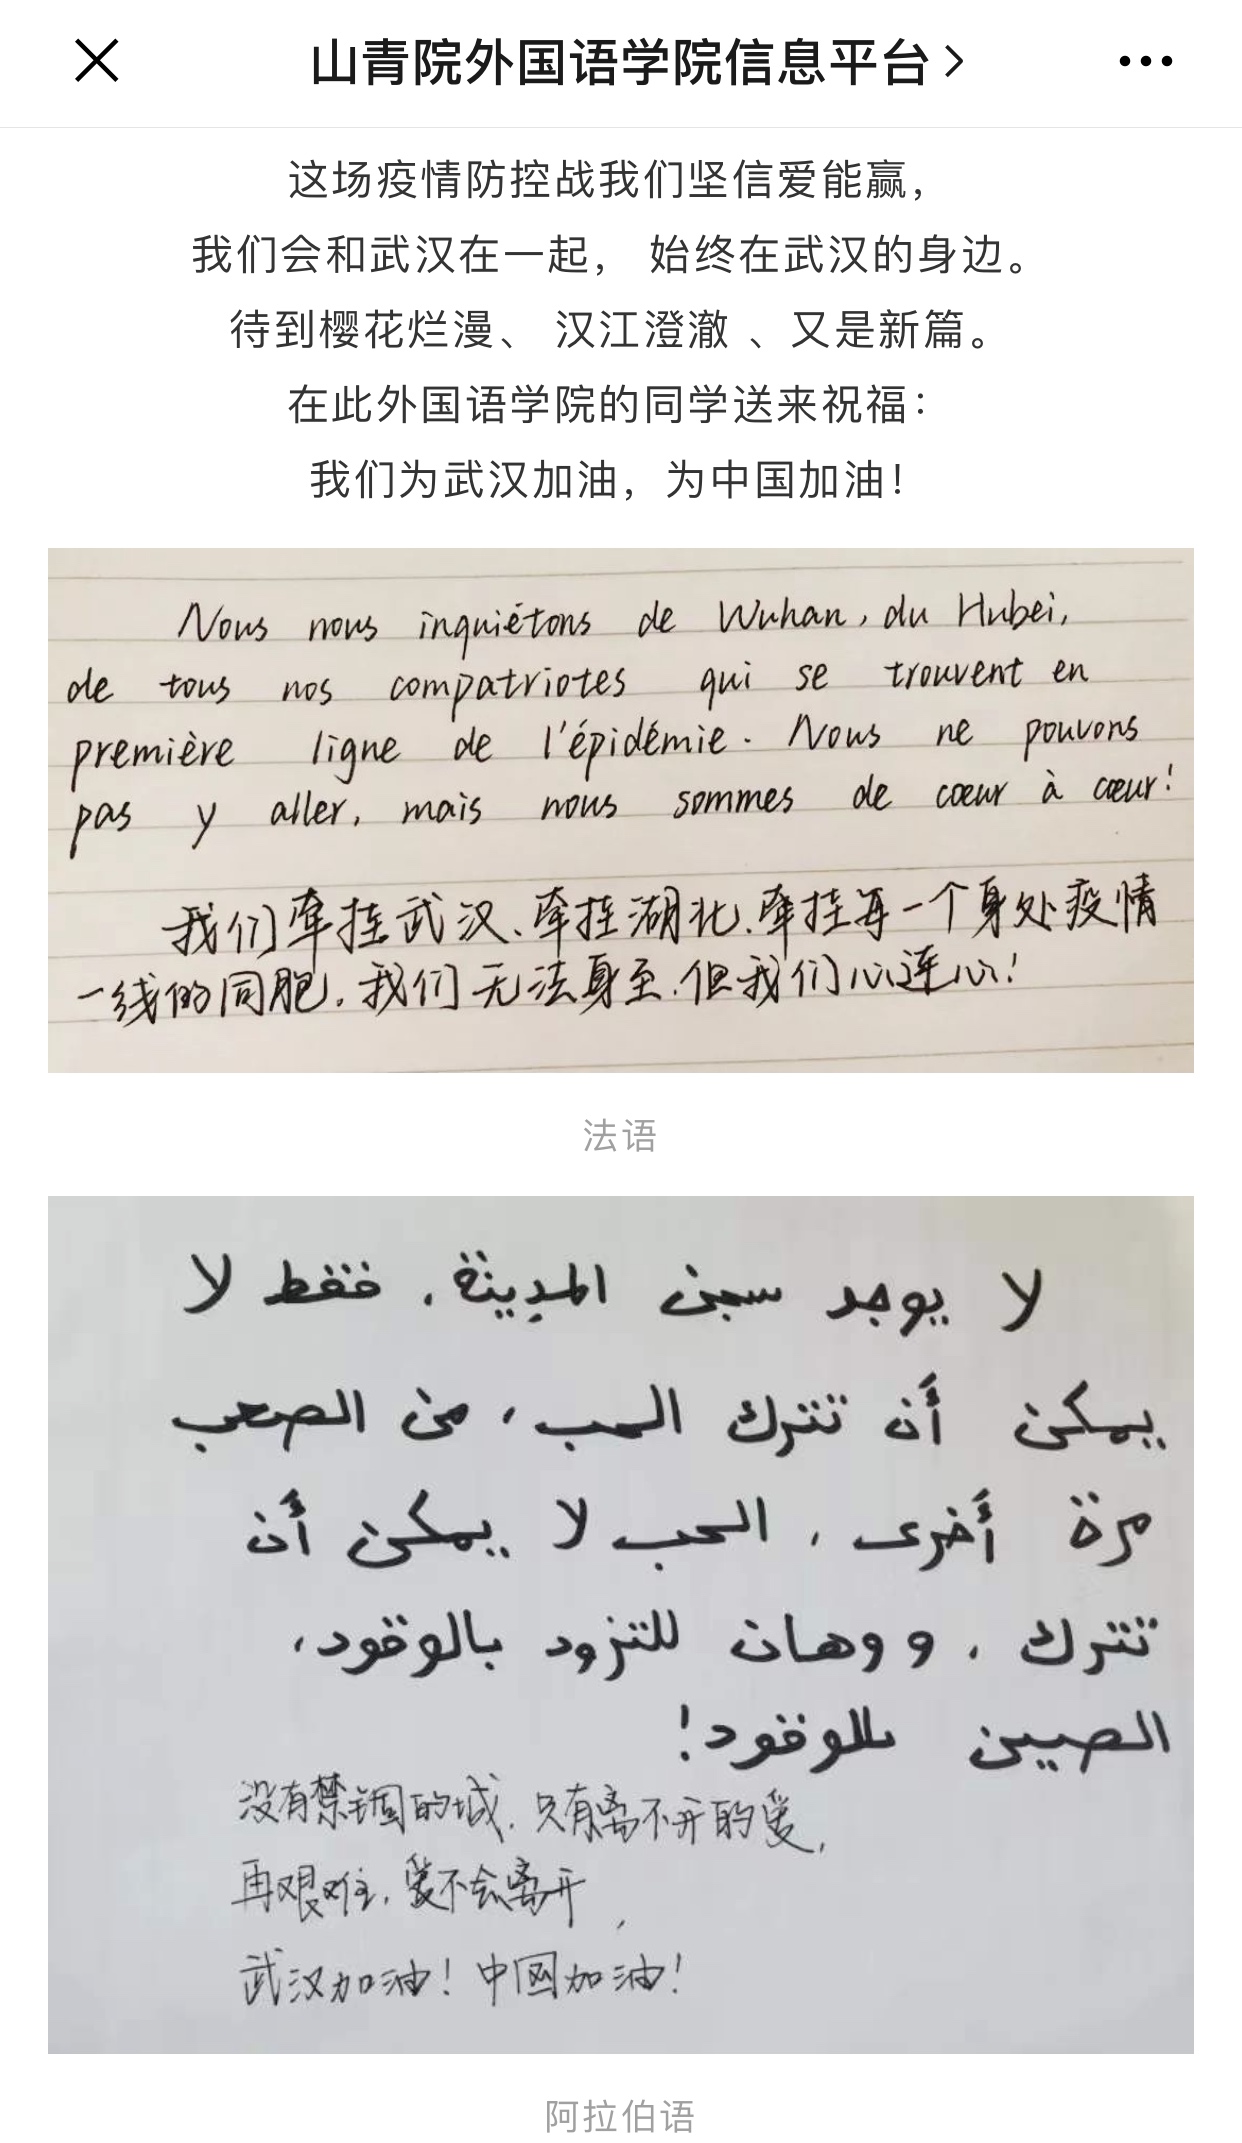 山青院外国语学院信息平台
这场疫情防控战我们坚信爱能赢，
我们会和武汉在一起， 始终在武汉的身边。
待到樱花烂漫、 汉江澄澈 、又是新篇。
在此外国语学院的同学送来祝福：
我们为武汉加油，为中国加油！
Nous nous inquiétons de Wuhan, du Hubei,
de tous nos compatriotes qui se trouvent en
première ligne de l'épidémie. Nous ne pouvons
pas y aller, mais nous sommes de cœur à cœur!
我们牵挂武汉、牵挂湖北、牵挂每一个身处疫情
一线的同胞。我们无法身至，但我们心连心！
法语
لا يوجد سجن المدينة، فقط لا
يمكن أن تترك الحب، من الصعب
مرة أخرى، الحب لا يمكن أن
تترك، ووهان للتزود بالوقود،
الصين للوقود!
没有禁锢的城，只有离不开的爱，
再艰难，爱不会离开，
武汉加油！中国加油！
阿拉伯语